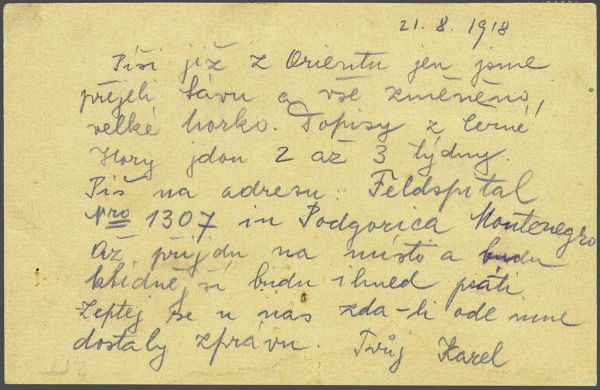 21. 8. 1918
Píši již z Orientu jen jsme
přejeli Sávu a vše změněno,
velké horko. Dopisy z Černé
Hory jdou 2 až 3 týdny.
Piš na adresu: Feldspital
Nro 1307 in Podgorica Montenegro
Až přijdu na místo a budu
klidnější budu ihned psáti
Zeptej se u nás zda-li ode mne
dostaly zprávu. Tvůj Karel